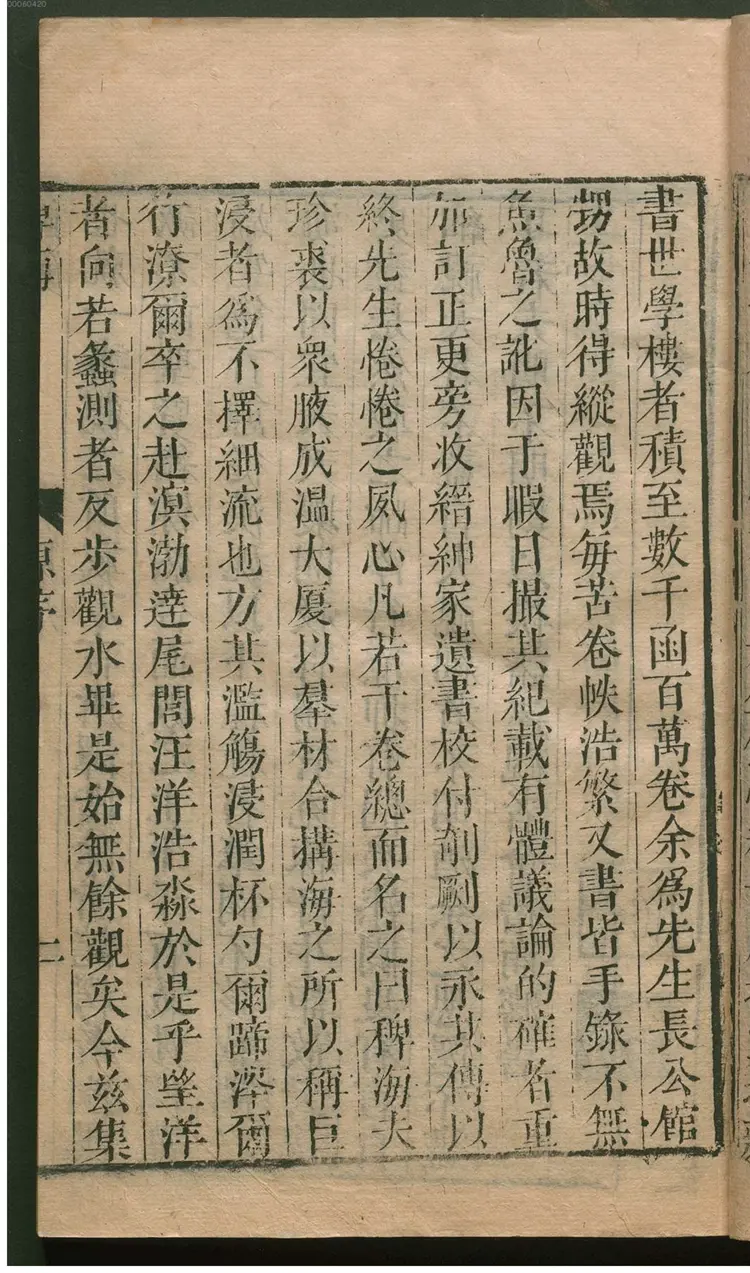 00060420
書世學樓者積至數千函百萬卷余爲先生長公館
甥故時得縱觀焉每苦卷帙浩繁又書皆手錄不無
魚魯之訛因于暇日撮其紀載有體議論的確者重
加訂正更旁收縉紳家遺書校付剞劂以永其傳以
終先生惓惓之夙心凡若干卷總而名之曰稗海夫
珍裘以衆腋成温大厦以羣材合搆海之所以稱巨
浸者爲不擇細流也方其濫觴浸潤杯勺爾蹄涔爾
行潦爾卒之赴溟渤達尾閭汪洋浩淼於是乎望洋
者向若蠡測者反步觀水畢是始無餘觀矣今兹集
原序
二